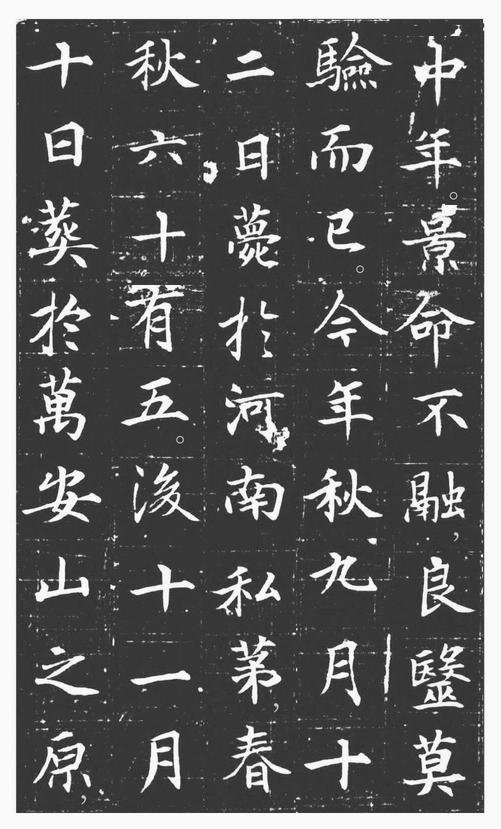 中年。景命不融，良醫莫
驗而已。今年秋九月十
二日薨於河南私苐，春
秋六十有五。後十一月
十日葬於萬安山之原，